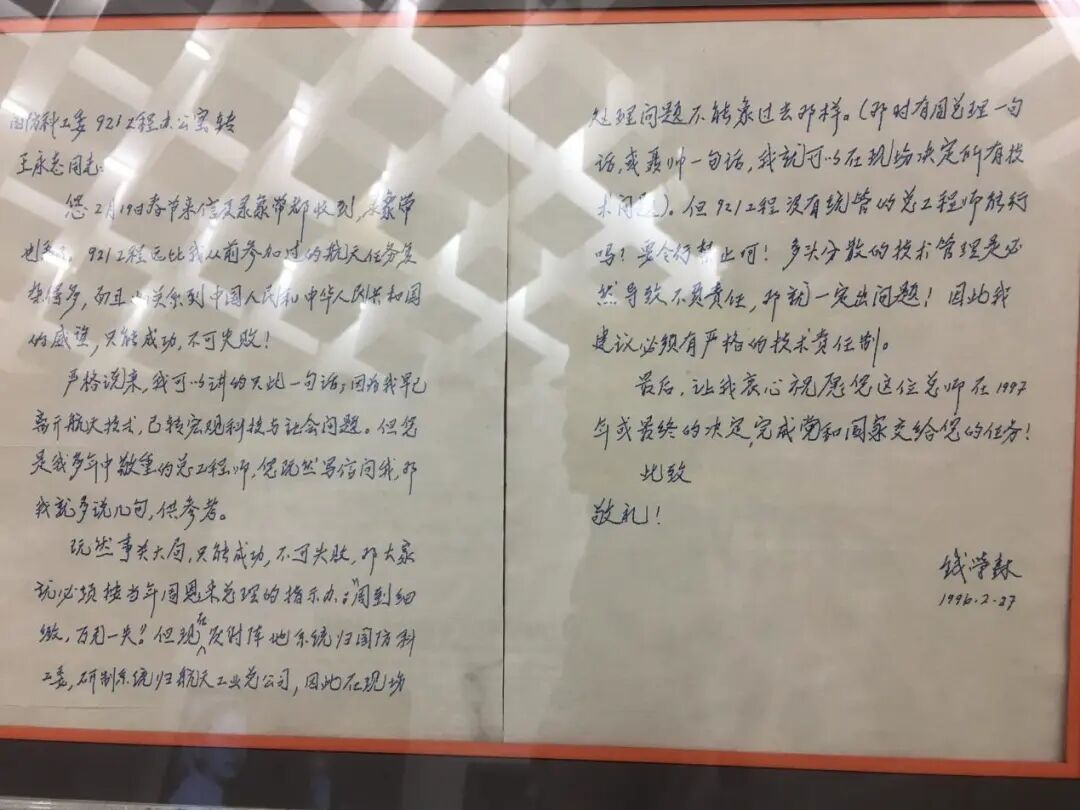 国防科工委921工程办公室转
王永志同志:
您2月19日春节来信及录象带都收到,录象带
也看了。921工程远比我从前参加过的航天任务复
杂得多,而且也关系到中国人民和中华人民共和国
的威望,只能成功,不可失败!
严格说来,我可以讲的只此一句话;因为我早已
离开航天技术,已转宏观科技与社会问题。但您
是我多年中敬重的总工程师,您既然写信问我,那
我就多说几句,供参考。
既然事关大局,只能成功,不可失败,那大家
就必须按当年周恩来总理的指示办:“周到细
致,万无一失”。但现在发射阵地系统归国防科
工委,研制系统归航天工业总公司,因此在现场
处理问题不能象过去那样。(那时有周总理一句
话,或聂帅一句话,我就可以在现场决定所有技
术问题)。但921工程没有统管的总工程师能行
吗?要令行禁止呵!多头分散的技术管理是必
然导致不负责任,那就一定出问题!因此我
建议必须有严格的技术责任制。
最后,让我衷心祝愿您这位总师在1997
年或最终的决定,完成党和国家交给您的任务!
此致
敬礼!
钱学森
1996.2.27